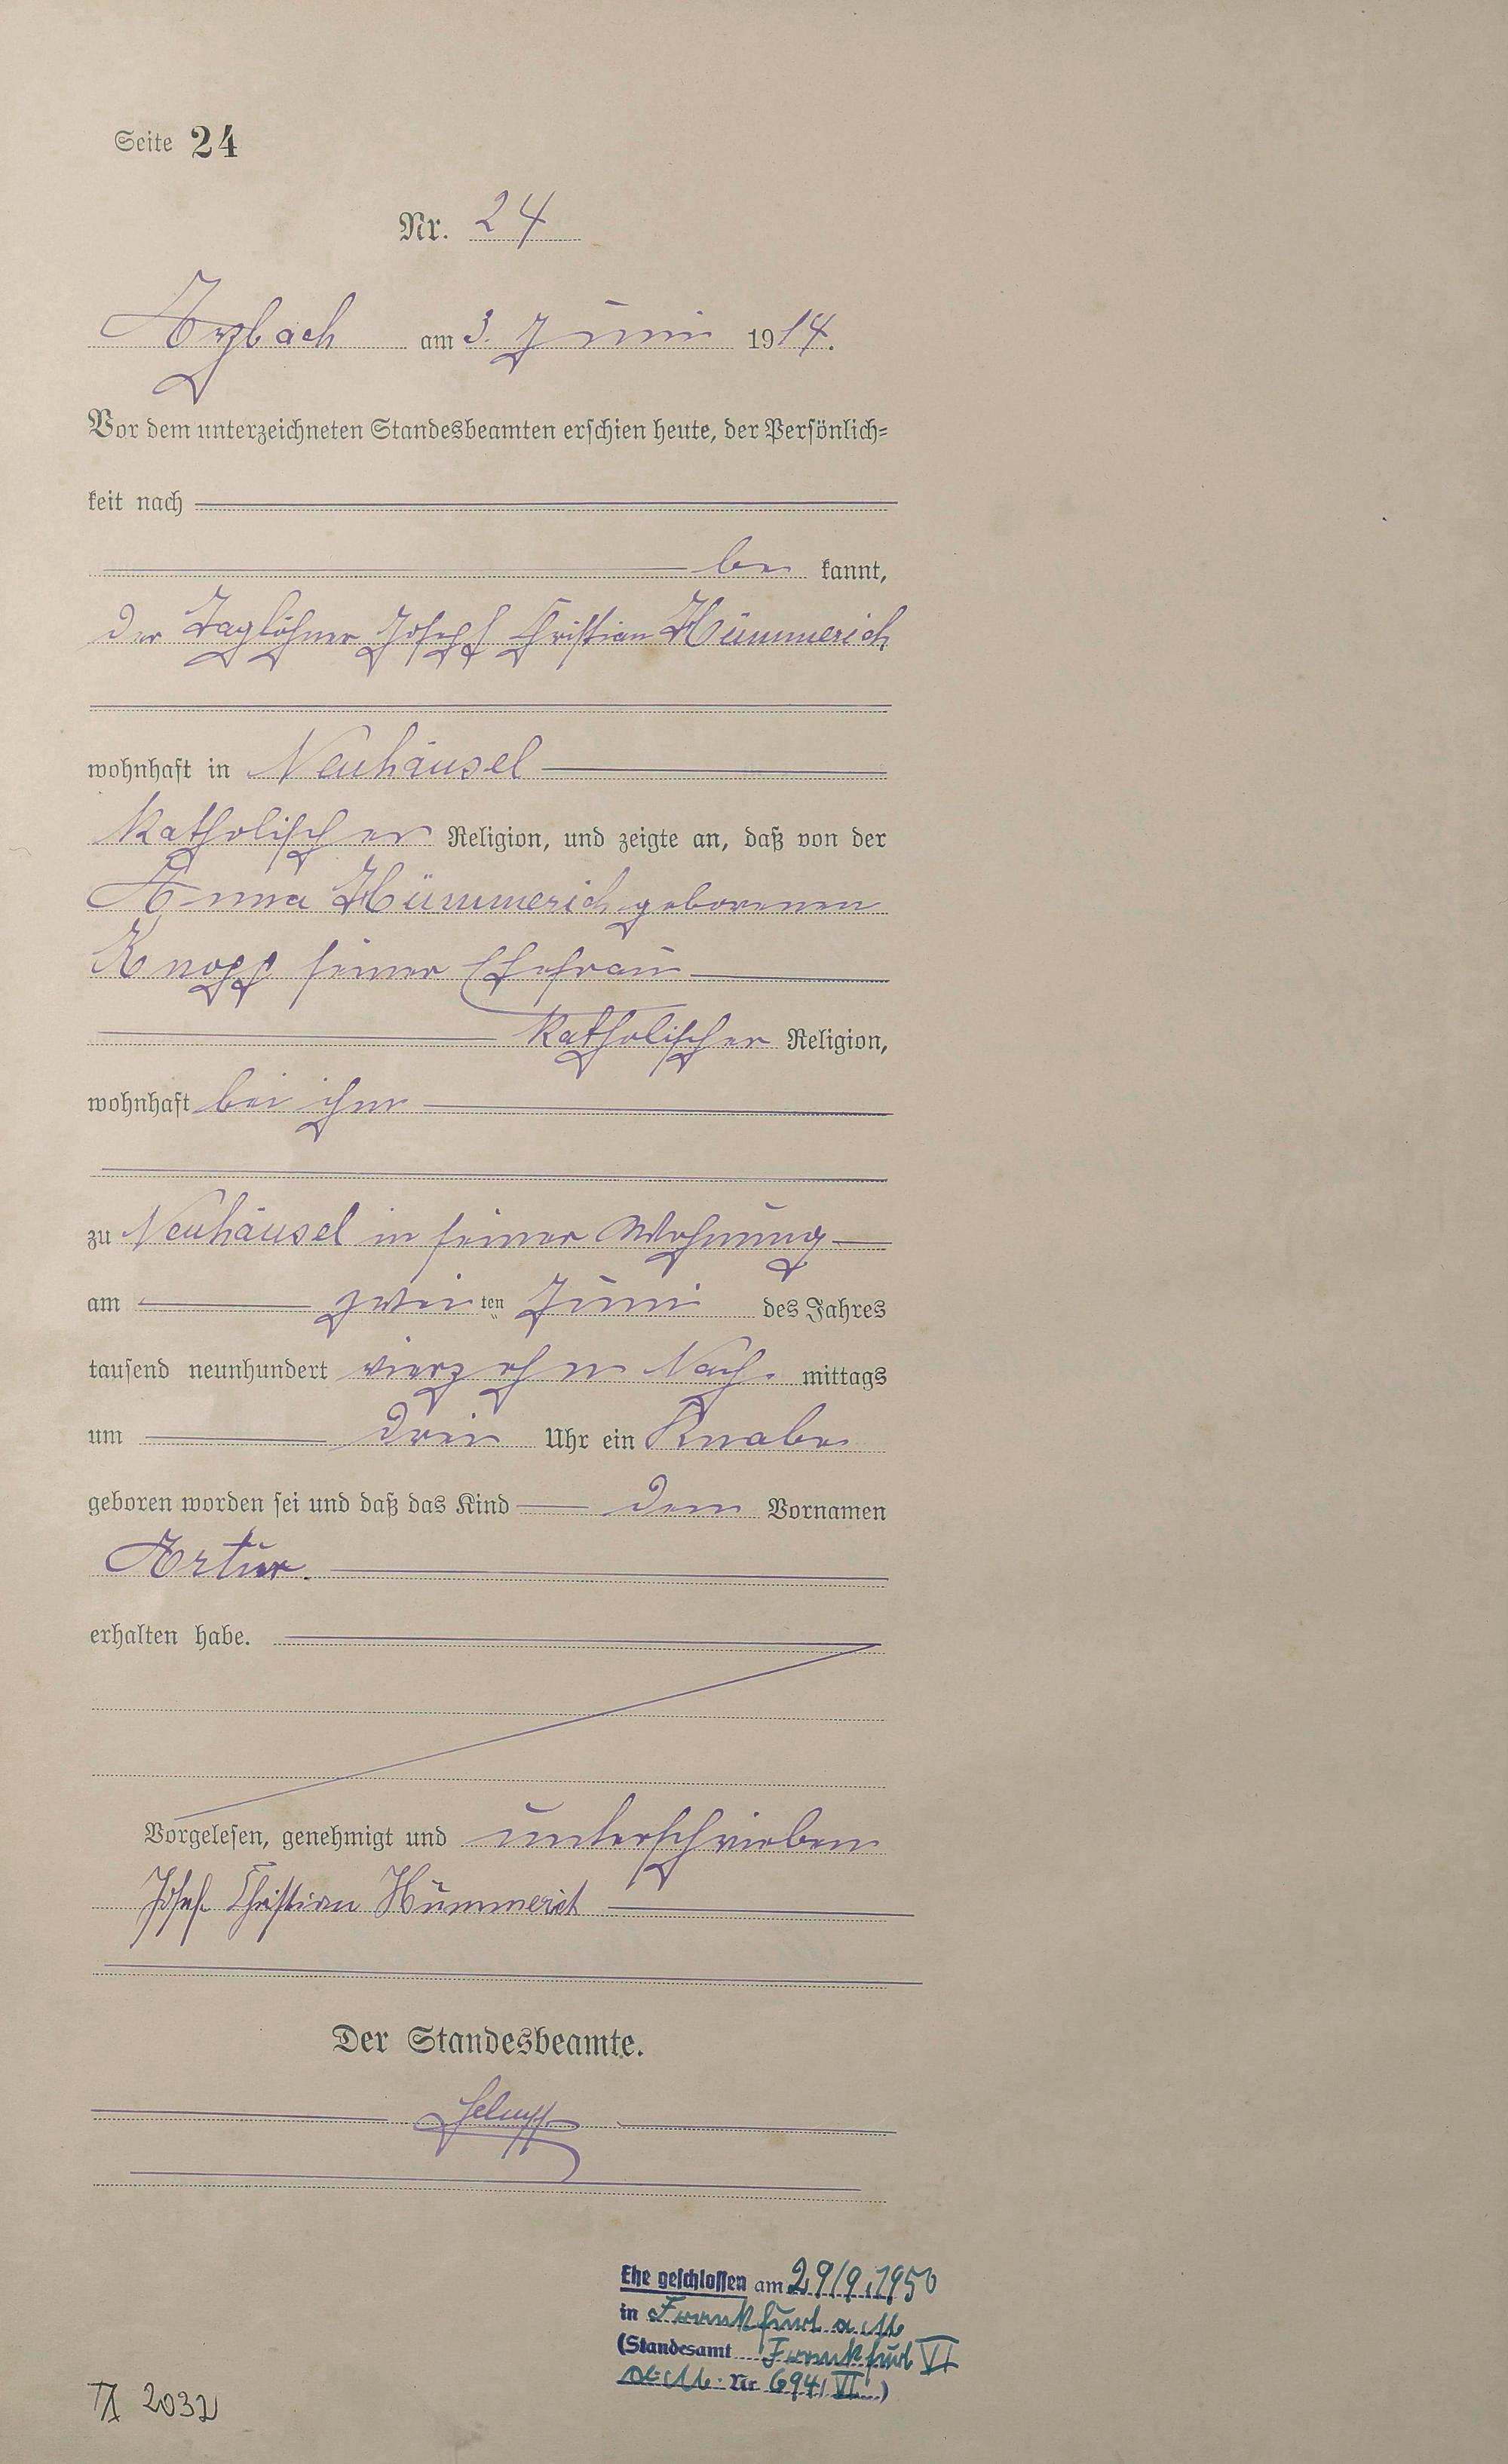 Seite 24
Nr. 24
Arzbach am 3. Juni 1914.
Vor dem unterzeichneten Standesbeamten erschien heute, der Persönlich=
keit nach
be kannt,
der Taglöhner Joseph Christian Hümmerich
wohnhaft in Neuhäusel
katholischer Religion, und zeigte an, daß von der
Anna Hümmerich geborenen
Knopp seiner Ehefrau
katholischer Religion,
wohnhaft bei ihm
zu Neuhäusel in seiner Wohnung
am zweiten Juni des Jahres
tausend neunhundert vierzehn Nach mittags
um drei Uhr ein Knabe
geboren worden sei und daß das Kind den Vornamen
Artur.
erhalten habe.
Vorgelesen, genehmigt und unterschrieben
Josef Christian Hümmerich
Der Standesbeamte.
Ehe geschlossen am 29/9.1950
in Frankfurt a M
(Standesamt Frankfurt VI
a. M. Nr 694/VI)